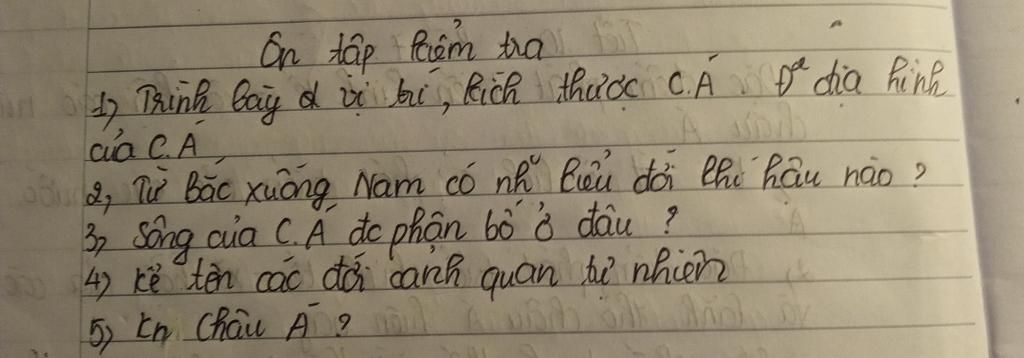 Ôn tập kiểm tra
1) Trình bày đ vị trí, kích thước C.Á. Đ² địa hình
của C.Á
2, Từ Bắc xuống Nam có nh~ kiểu đới khí hậu nào?
3) Sông của C.Á đc phân bố ở đâu?
4) Kể tên các đới cảnh quan tự nhiên
5) Kn Châu Á?